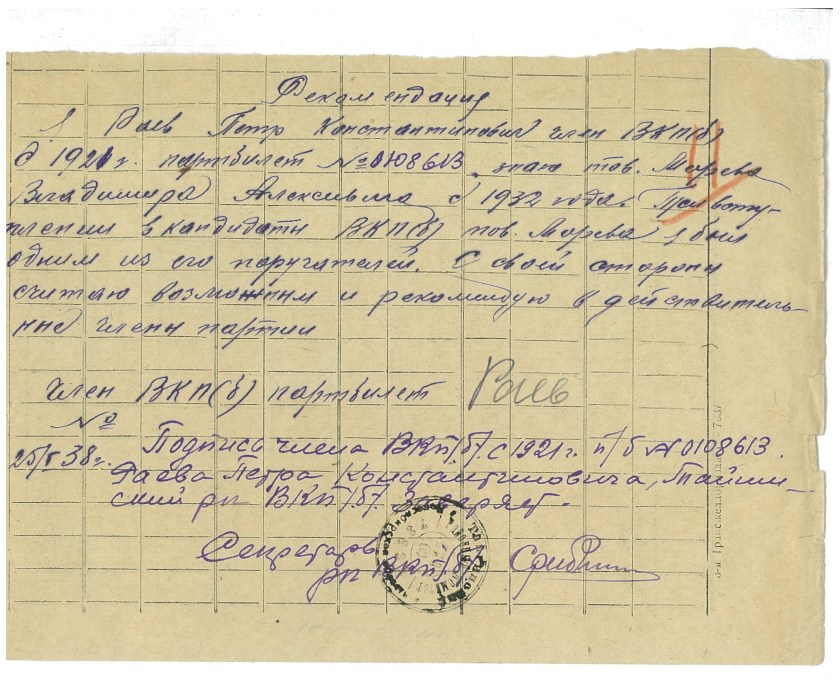 Рекомендация
Я Раев Петр Константинович член ВКП(б)
с 1921 г. партбилет №0108613. знаю тов. Морева
Владимира Алексивича с 1932 года. При всту-
плении в кандидаты ВКП(б) тов. Морева я был
одним из его поручателей. С своей стороны
считаю возможным и рекомендую в действитель-
ные члены партии
Член ВКП(б) партбилет Раев
№
25/V 38 г.
Подпись члена ВКП/б/. с 1921 г. п/б №0108613.
Раева Петра Константиновича,
ский рк ВКП/б/. Заверяет.
Секретарь
рк ВКП/б/